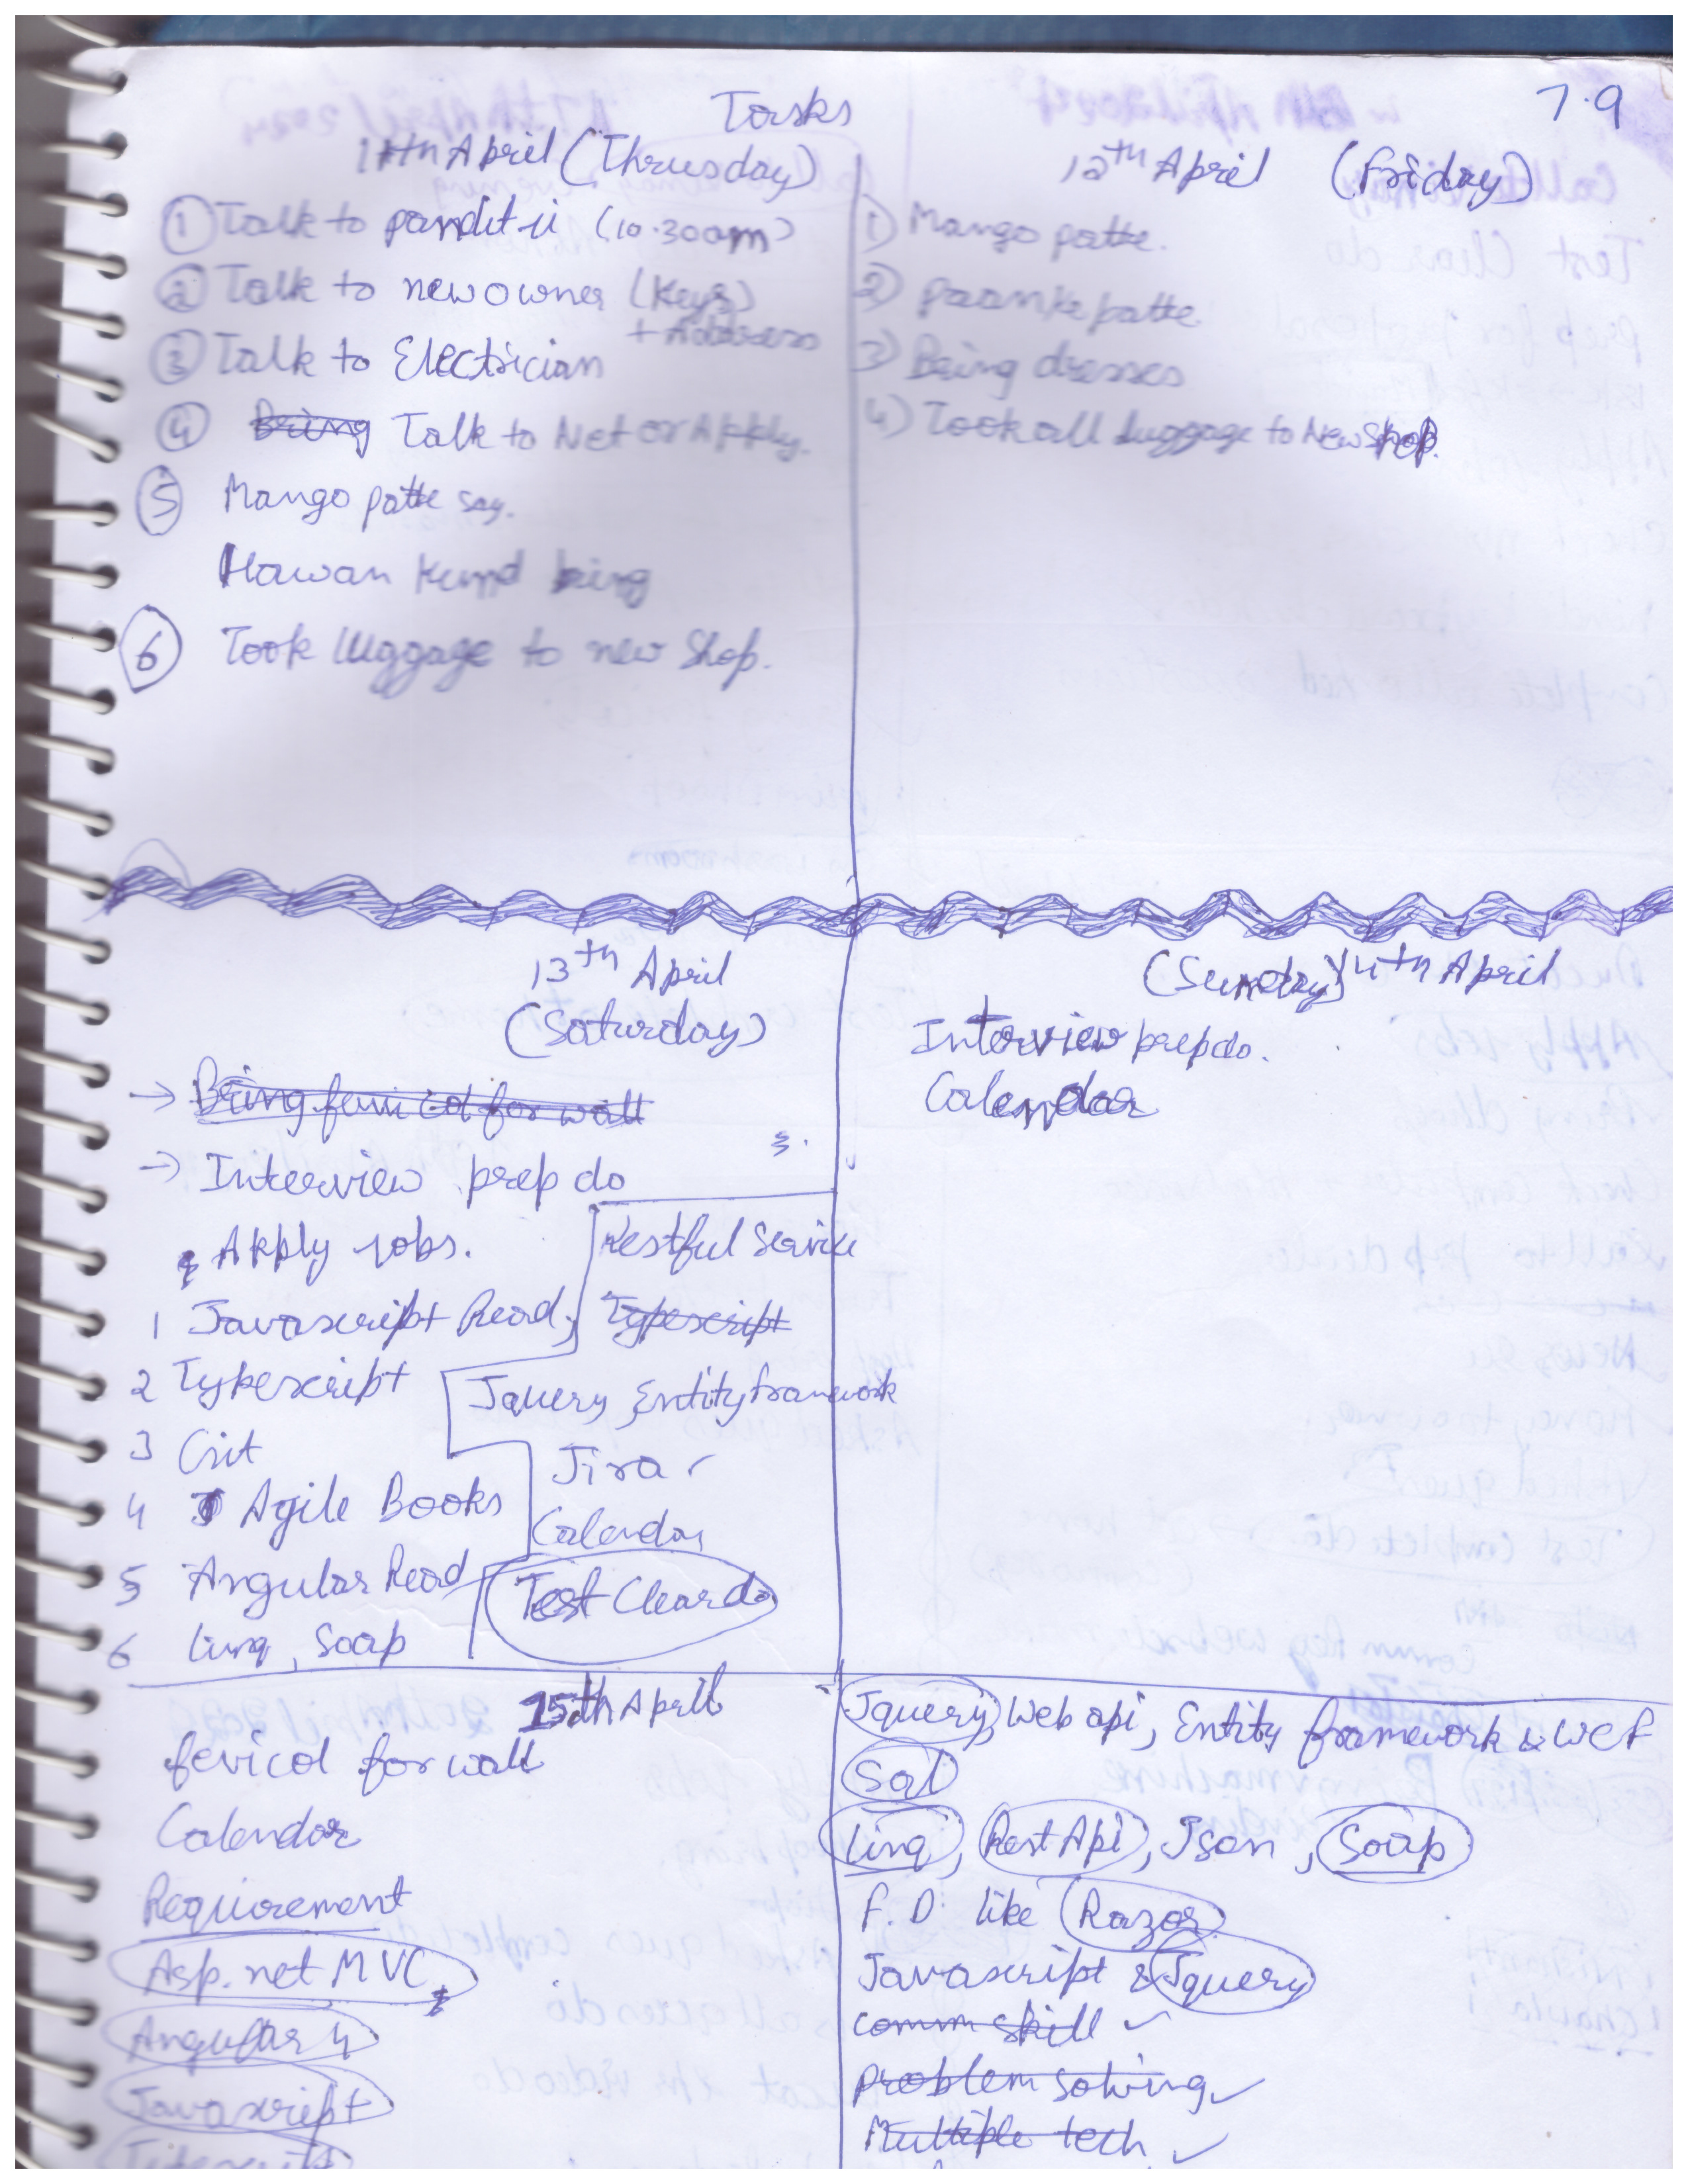 Tasks
7.9
11th April (Thrusday)
① Talk to pandit ji (10.30am)
② Talk to new owner (Keys)
+ Address
③ Talk to Electrician
④ Bring Talk to Net or Apply.
⑤ Mango patte say.
Hawan Kund bring
⑥ Took luggage to new Shop.
12th April (Friday)
1) Mango patte.
2) paan ke patte
3) Bring dresses
4) Took all luggage to New Shop.
13th April
(Saturday)
→ Bring fevicol for wall
→ Interview prep do
& Apply jobs.
1 Javascript Read
2 Typescript
3 Git
4 Agile Books
5 Angular Read
6 linq, Soap
Restful Service
Typescript
Jquery Entity framework
Jira
Calendar
Test Clear do
(Sunday) 14th April
Interview prep do.
Calendar
15th April
fevicol for wall
Calendar
Requirement
Asp.net MVC
Angular 4
Javascript
Jquery, Web api, Entity framework & WCF
Sql
linq, Rest Api, Json, Soap
F.D. like Razor
Javascript & Jquery
comm skill ✓
problem solving ✓
Multiple tech ✓